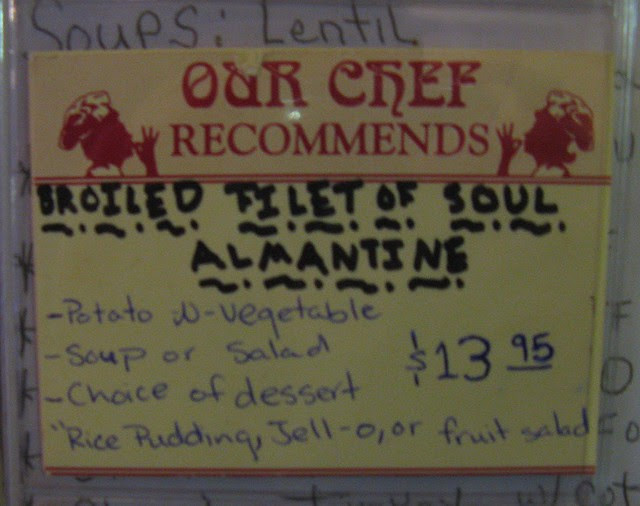 Soups: Lentil
OUR CHEF
RECOMMENDS
BROILED FILET OF SOUL
ALMANTINE
-Potato -N- Vegetable
-Soup or Salad
$13 95
-Choice of dessert
"Rice Pudding, Jell-o, or fruit salad